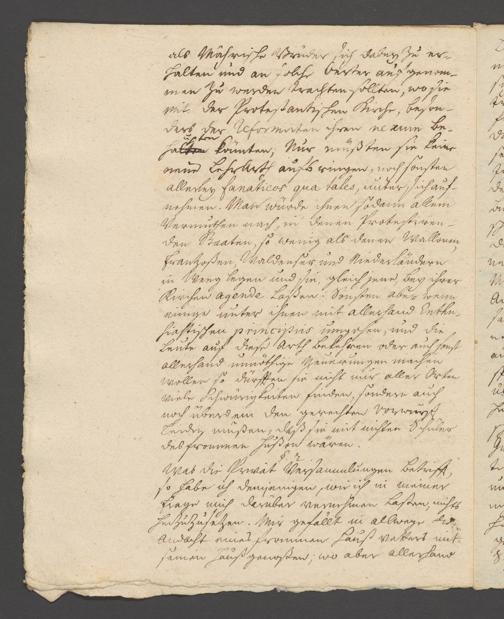 als Mährische Brüder sich dabey zu er-
halten und an solche Oerter aufgenom-
men zu werden trachten sollten, wo sie
mit der Protestantischen Kirche, beson-
ders der Reformirten ihren nexum be-
halten könnten, Nur müsten sie keine
neue LehrArth aufbringen, noch sonsten
allerley fanaticos qua tales, unter sich auf-
nehmen. Man würde ihnen sodann allem
Vermuthen nach, in denen Protestiren-
den Staaten, so wenig als denen Wallonen,
Frantzosen, Waldenser und Niederländern
in Weeg legen und sie, gleich jene, bey ihrer
Kirchen agende laßen. Sonsten aber wenn
einige unter ihnen mit allerhand Enthu-
siastischen principiis umgehen, und die
Leute auf diese Arth bekehren oder auch sonst
allerhand unnöthige Neuerungen machen
wollen so dürfften sie nicht nur aller Orten
viele Schwürigkeiten finden, sondern auch
noch überdem den gerechten Vorwurff
leiden müßen, daß sie mit nichten Schüler
des frommen Hußen wären.
Was die Privat Versammlungen betrifft,
so habe ich demjenigen, wie ich in meiner
Frage mich darüber vernehmen laßen, nichts
hinzuzusetzen. Mir gefällt in allwege die
Andacht eines frommen Hauß vaters mit
seinen Haußgenoßen; wo aber allerhand